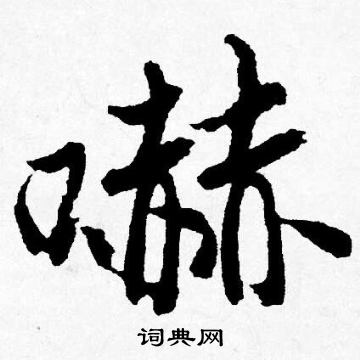 嚇
词典网